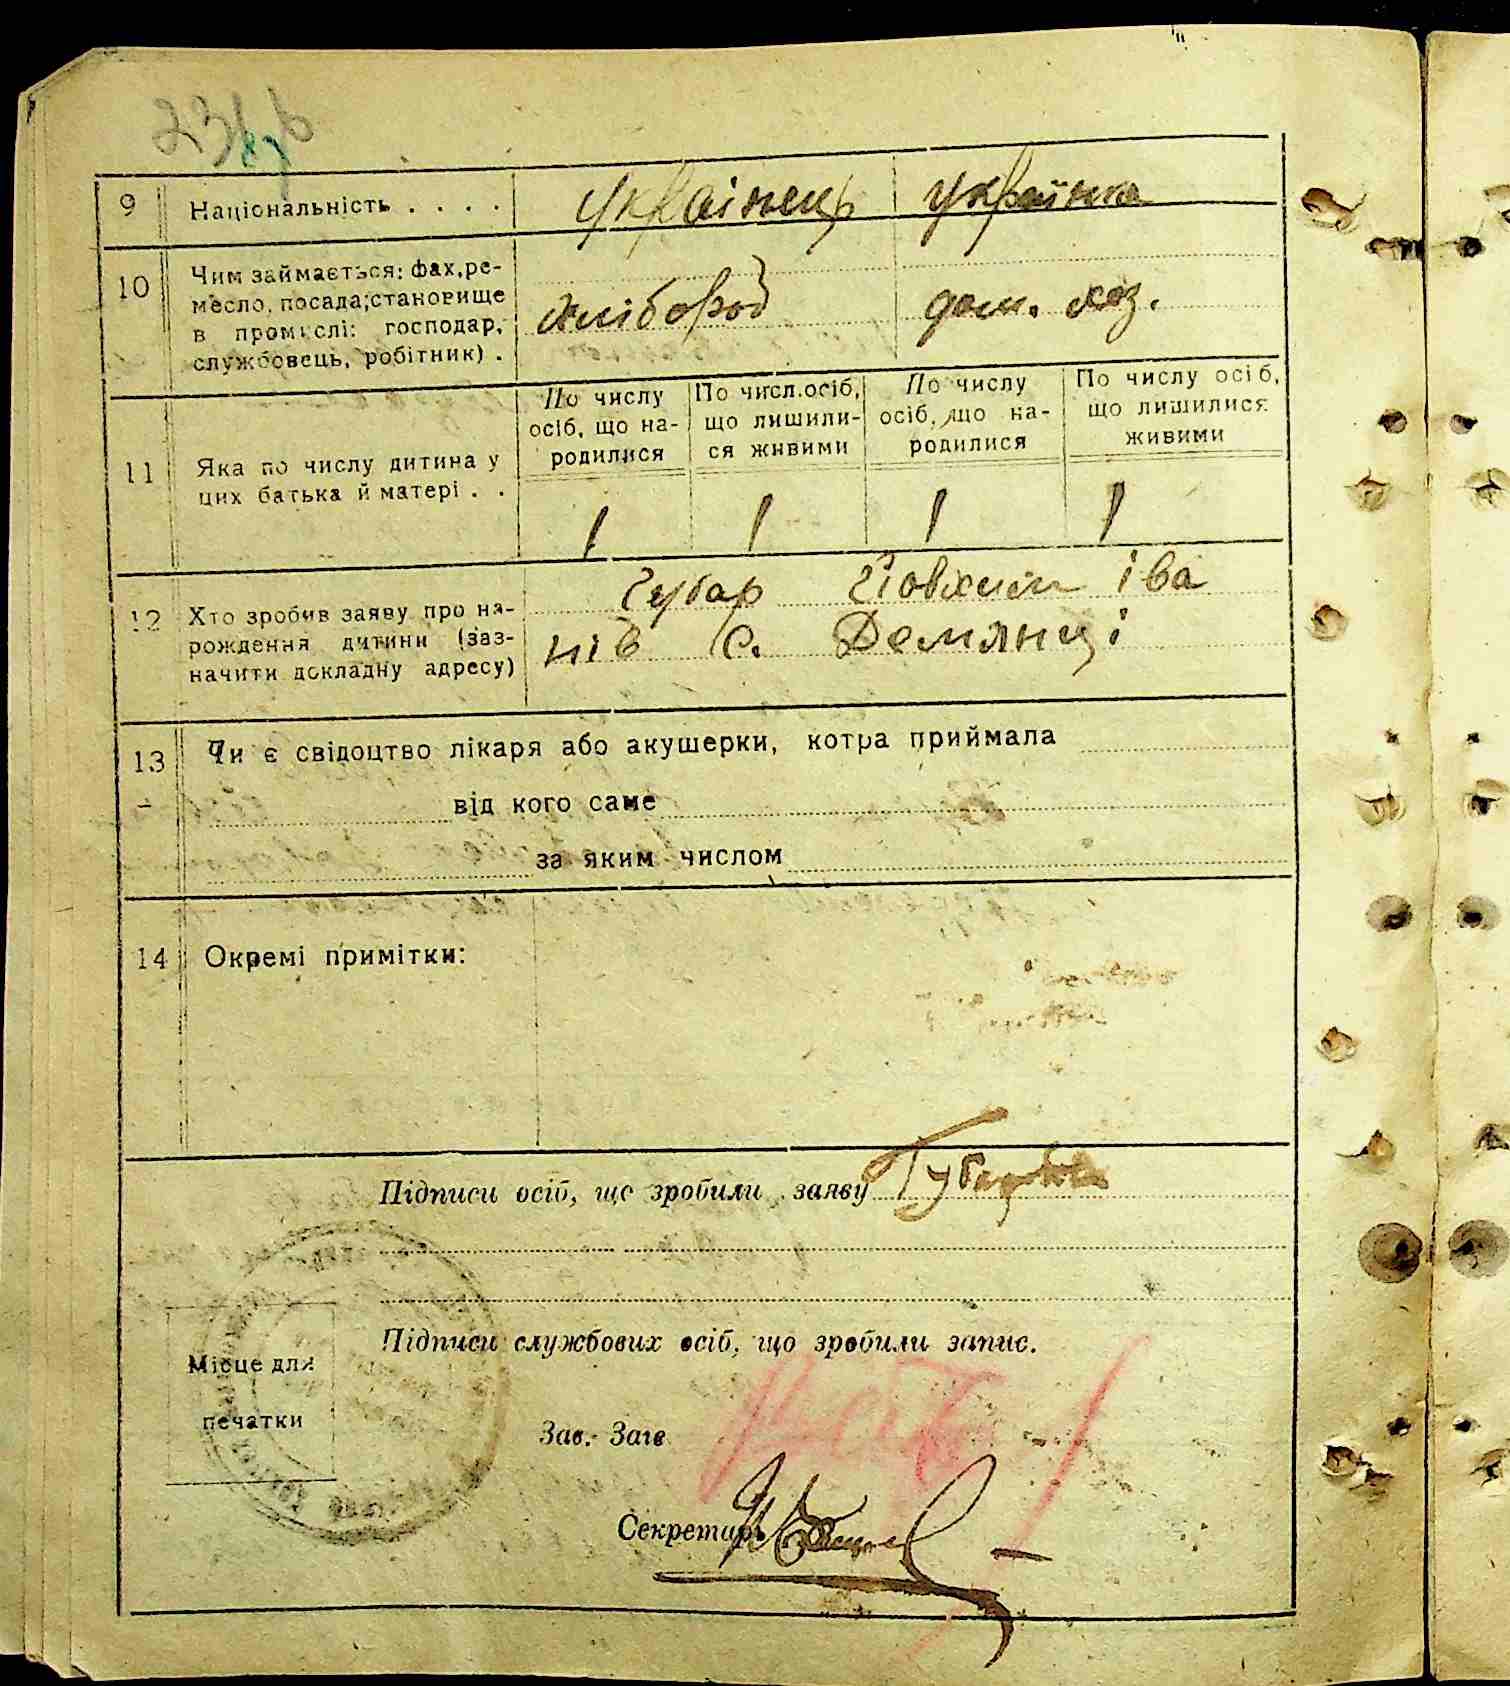 9 Національність . . . . українець українка
10 Чим займається: фах, ре-
месло, посада; становище
в промислі: господар,
службовець, робітник) .
хлібороб дом. хоз.
По числу осіб, що на- родилися
По числ. осіб, що лишили- ся живими
По числу осіб, що на- родилися
По числу осіб, що лишилися живими
11 Яка по числу дитина у
цих батька й матері . .
1 1 1 1
12 Хто зробив заяву про на-
рождення дитини (заз-
начити докладну адресу)
Губар Йовхим Іва
нів с. Демянці
13 Чи є свідоцтво лікаря або акушерки, котра приймала
від кого саме
за яким числом
14 Окремі примітки:
Підписи осіб, що зробили заяву Губар
Підписи службових осіб, що зробили запис.
Місце для
печатки
Зав. Загв
Секретарь